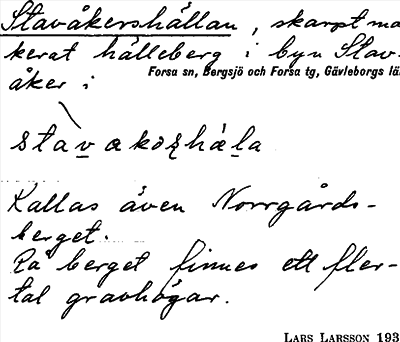 Stavåkershällan, skarpt ma
kerat hälleberg i byn Stav-
Forsa sn, Bergsjö och Forsa tg, Gävleborgs lä
åker i
Kallas även Norrgårds-
berget.
På berget finnes ett fler-
tal gravhögar.
LARS LARSSON 193